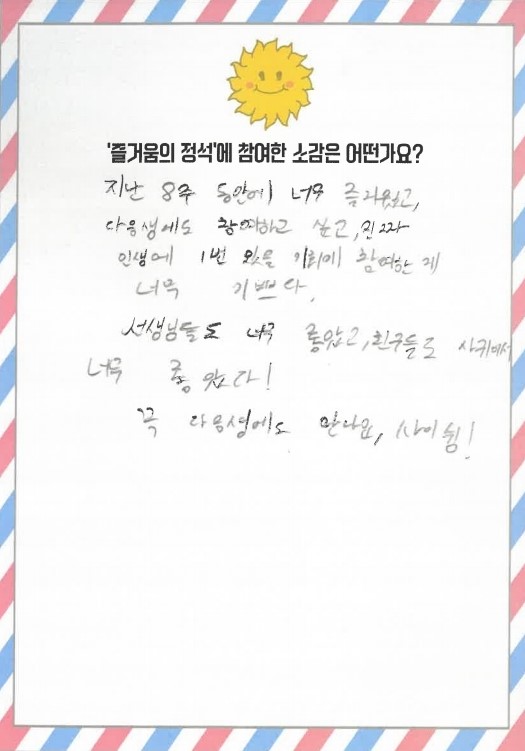 '즐거움의 정석'에 참여한 소감은 어떤가요?
지난 8주 동안에 너무 즐거웠고,
다음생에도 참여하고 싶고, 진짜
인생에 1번 있을 기회에 참여한 게
너무 기쁘다.
선생님들도 너무 좋았고, 친구들도 사귀어서
너무 좋았다!
꼭 다음생에도 만나요,